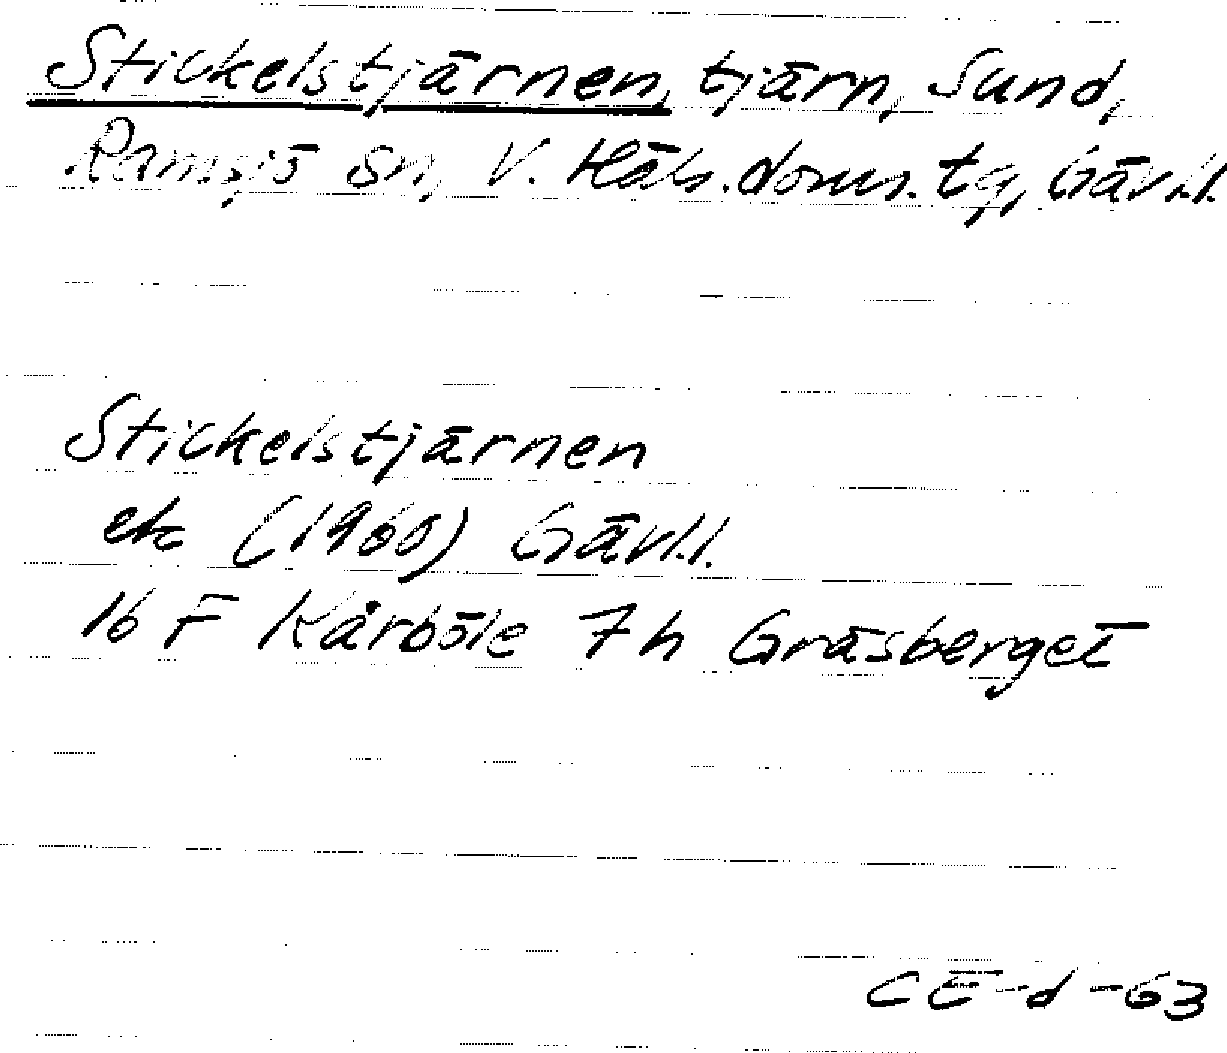 Stickelstjärnen, tjärn, Sund,
Ramsjö sn, V. Häls. doms. tg, Gävl.l.
Stickelstjärnen
ek (1960) Gävl.l.
16 F Kårböle 7h Gräsberget
CE-d-63